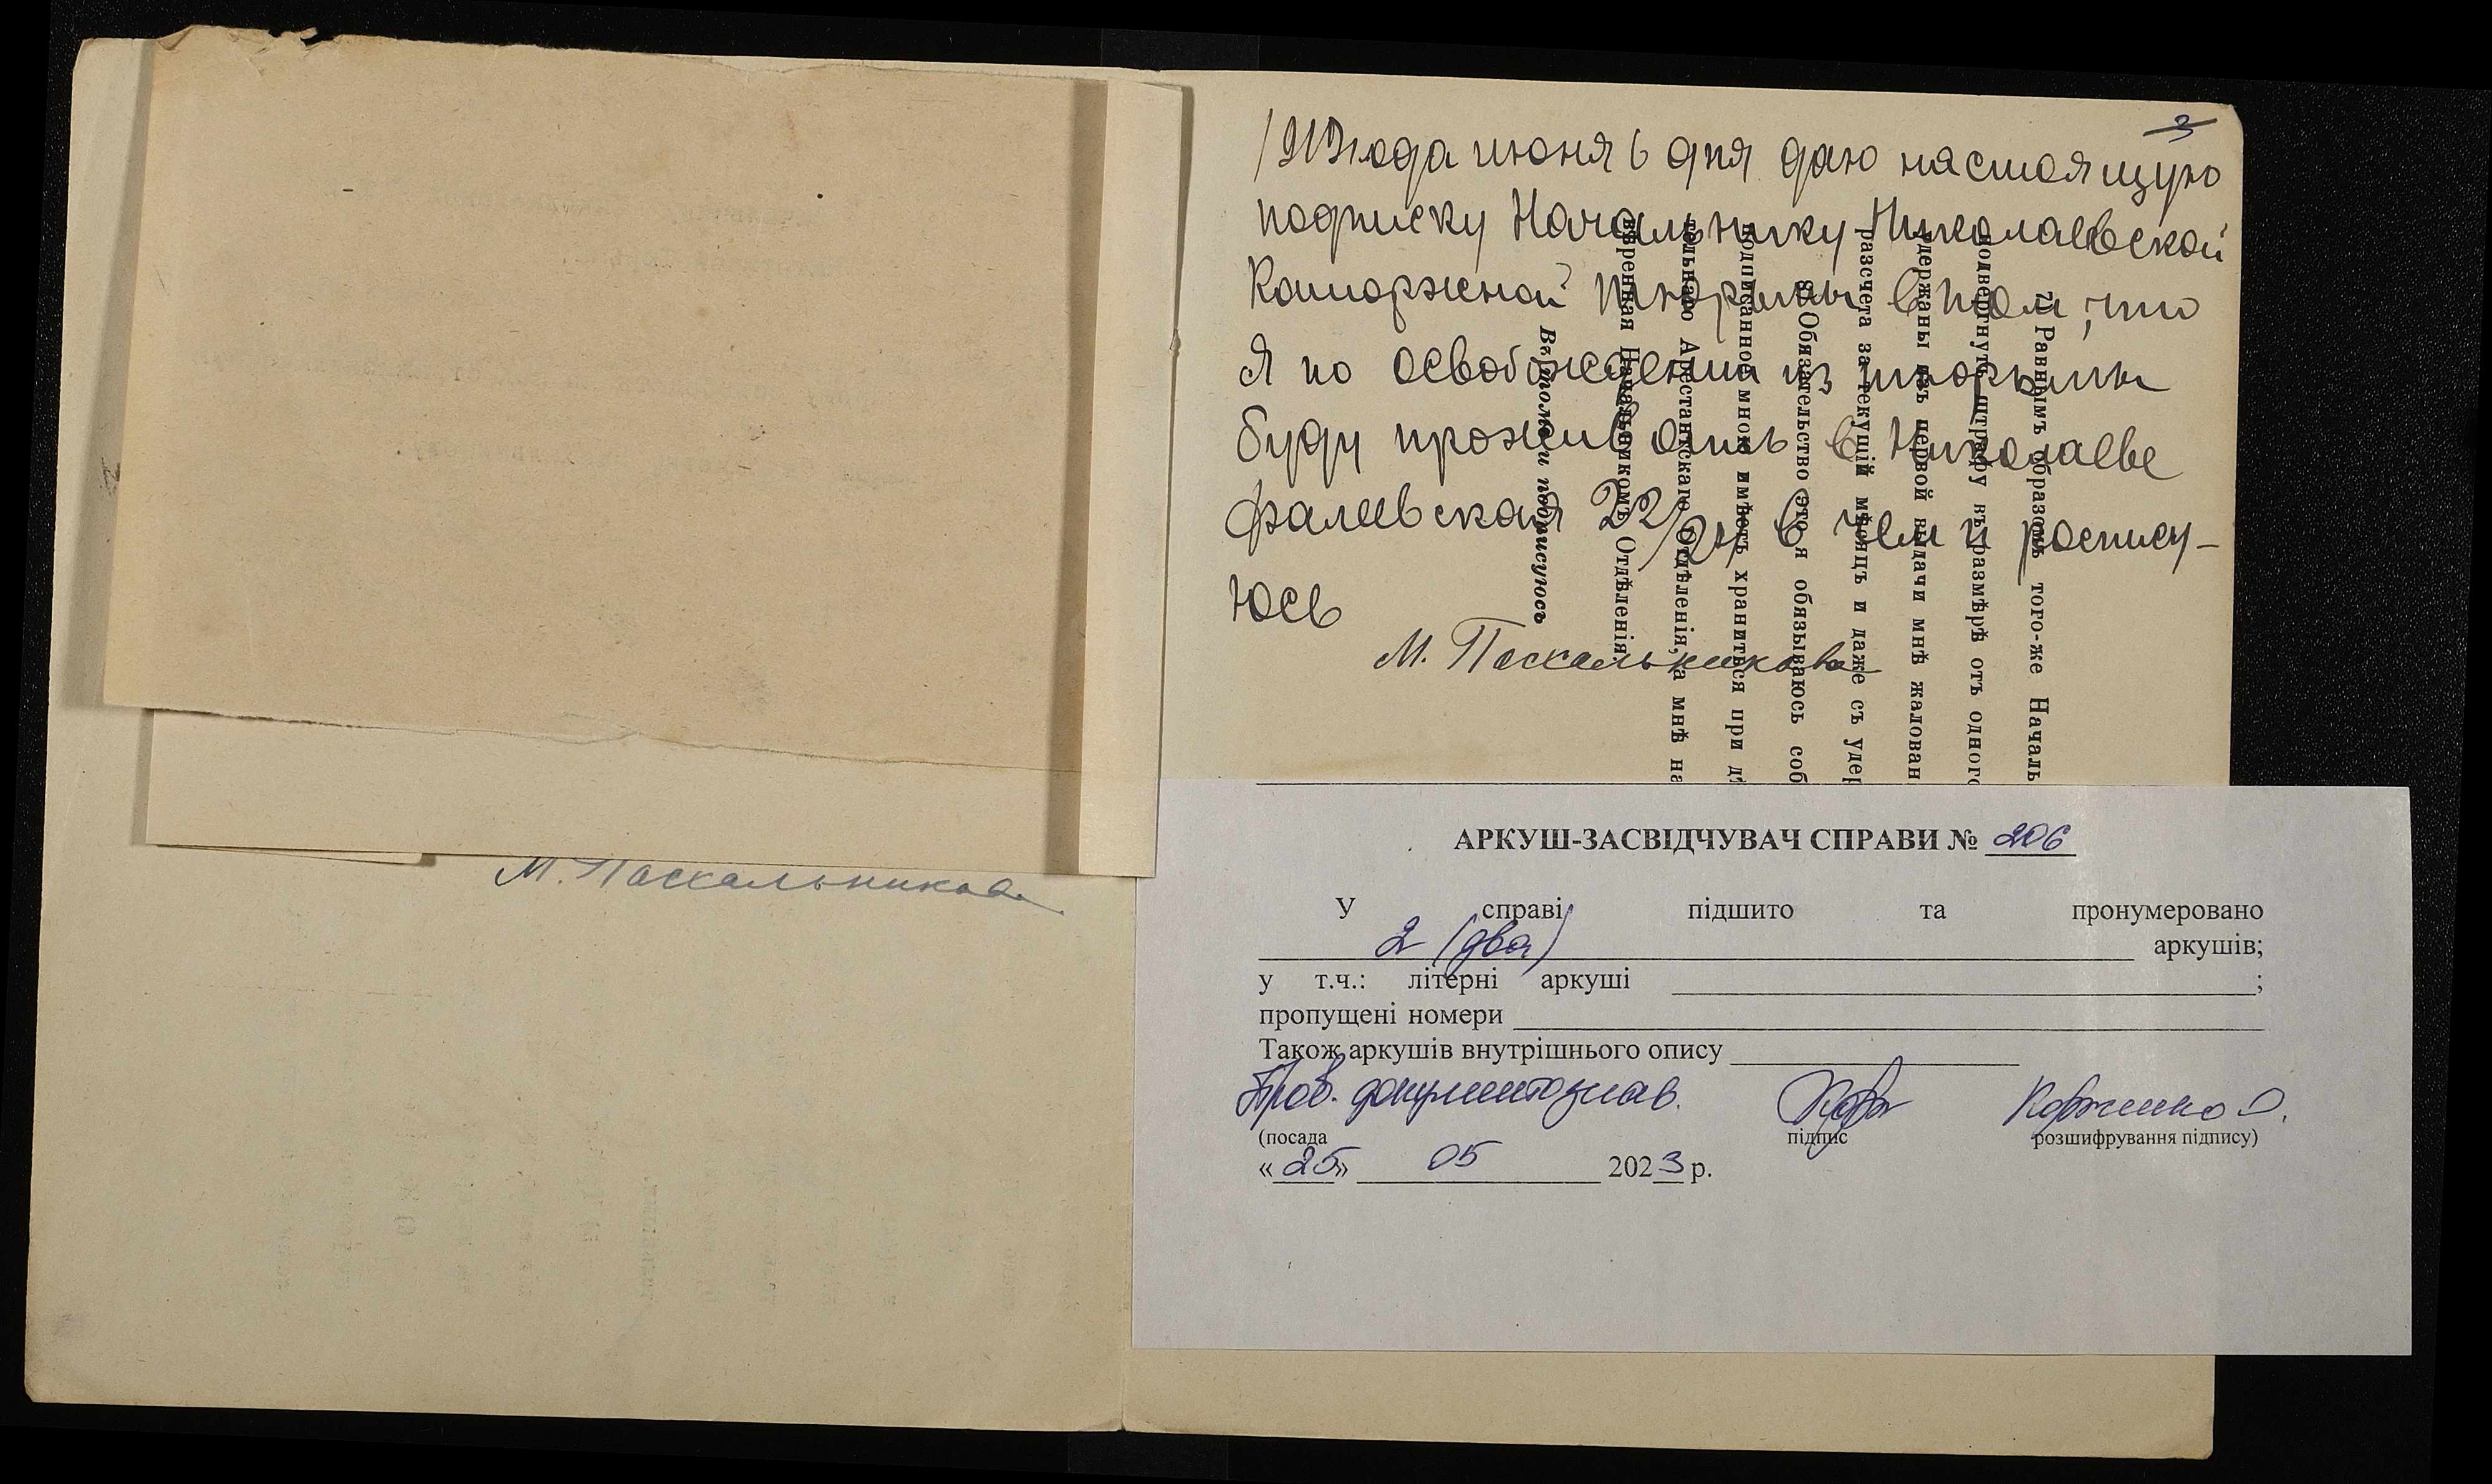 3
года июня 6 дня даю настоящую
подписку Начальнику Николаевской
Каторжной тюрьмы в том, что
я по освобождении из тюрьмы
буду проживать в Николаеве
фалеевская 22/24 в чем и распису-
юсь
М. Паскальникова
М. Паскальникова
7) Равнымъ образомъ того-же Началь
подвергнуть штрафу въ размѣрѣ отъ одного
удержаны изъ первой выдачи мнѣ жалован
разсчета за текущій мѣсяцъ и даже съ удер
8) Обязательство это я обязываюсь соб
подписанное мною имѣетъ храниться при дѣ
Арестантскаго Отдѣленія, а мнѣ на
ввѣренная Начальникомъ Отдѣленія.
Въ томъ и подписуюсь
АРКУШ-ЗАСВІДЧУВАЧ СПРАВИ № 206
У справі підшито та пронумеровано
2 (два) аркушів;
у т.ч.: літерні аркуші ;
пропущені номери
Також аркушів внутрішнього опису
Пров. документознав.
(посада підпис розшифрування підпису)
«25» 05 2023 р.